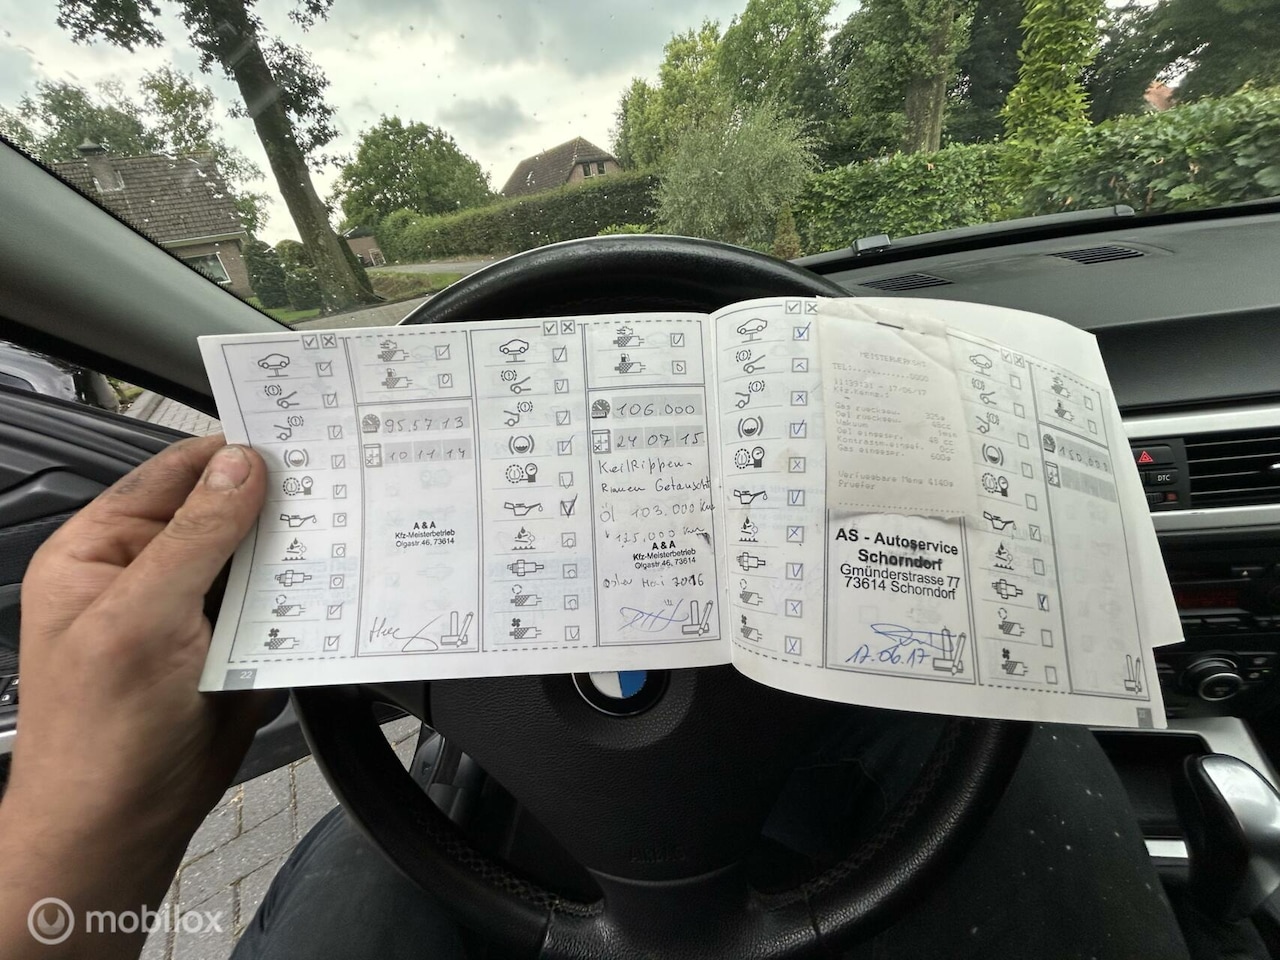 95.5713
10 11 14
A & A
Kfz-Meisterbetrieb
Olgastr.46, 73614
22
106.000
24 07 15
KeilRippen-
Riemen Getauscht
Öl 103.000 Km
125.000 Km
A & A
Kfz-Meisterbetrieb
Olgastr.46, 73614
oder Mai 2016
MEISTERWERKSHO
TEL:.........0000
17/06/17
Gas ruecksau. 325g
Oel ruecksau.
Vakuum
Oel eingespr.
Kontrastm.eingef. 0cc
Gas eingespr. 600g
Verfuegbare Menge 4140g
Pruefer
AS - Autoservice
Schorndorf
Gmünderstrasse 77
73614 Schorndorf
17.06.17
DTC
mobilox